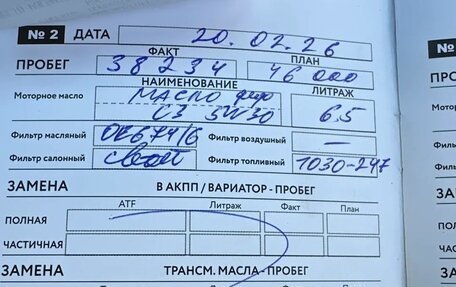 № 2 ДАТА 20.02.26
ФАКТ ПЛАН
ПРОБЕГ 38234 46 000
НАИМЕНОВАНИЕ ЛИТРАЖ
Моторное масло МАСЛО 6.5
C3 5W30
Фильтр масляный OE674/6 Фильтр воздушный —
Фильтр салонный свой Фильтр топливный 1030-247
ЗАМЕНА В АКПП / ВАРИАТОР - ПРОБЕГ
ATF Литраж Факт План
ПОЛНАЯ
ЧАСТИЧНАЯ
ЗАМЕНА ТРАНСМ. МАСЛА - ПРОБЕГ
№
ПР
Мото
Фил
Фил
ЗА
ПО
ЧА
ЗА